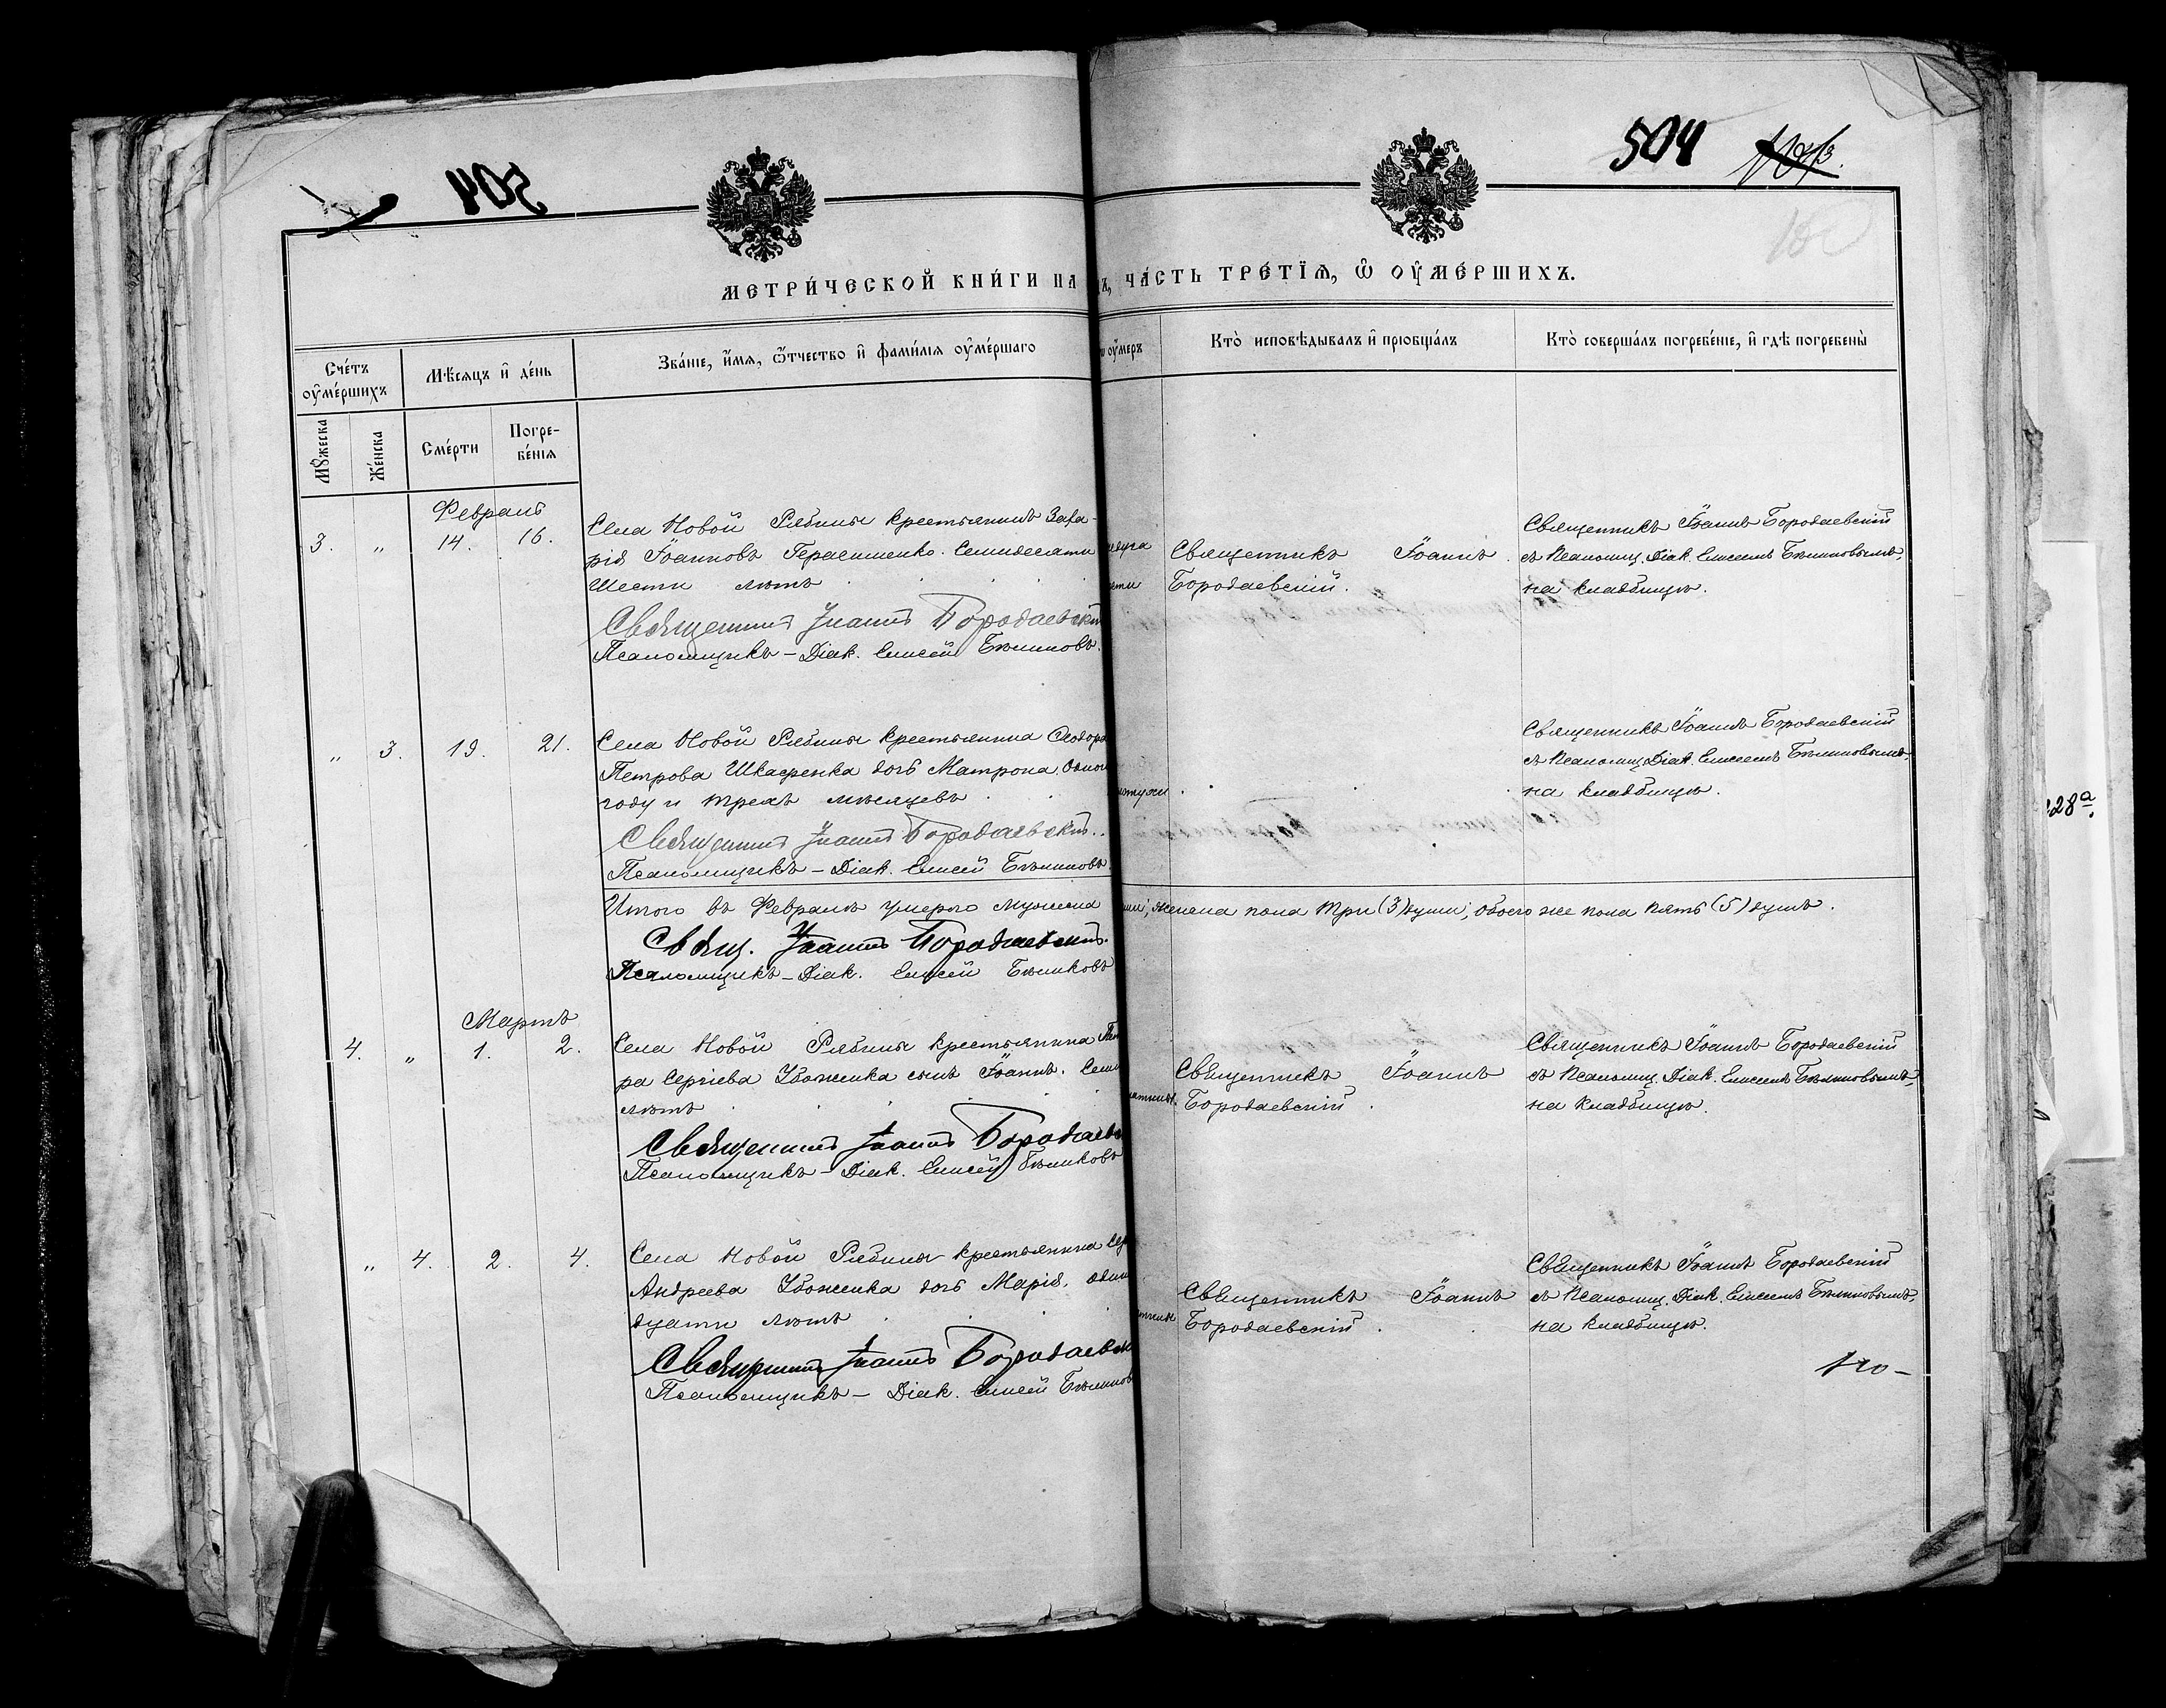 504
504
МЕТРИ́ЧЕСКОЙ КНИ́ГИ НА
Ъ, ЧА́СТЬ ТРЕ́ТЇѦ, Ѽ ОУ҆МЕ́РШИХЪ.
Сче́тъ оу҆ме́ршихъ
Мѣ́сяцъ и҆ де́нь
Зва́нїе, и҆́мя, ѻ҆́тчество и҆ фами́лїя оу҆ме́ршаго
оу҆́меръ
Кто̀ исповѣ́дывалъ и҆ прїобща́лъ
Кто̀ соверша́лъ погребе́нїе, и҆ гдѣ̀ погребены̀
Мꙋ́жеска
Же́нска
Сме́рти
Погребе́нїя
Февраль
3. „ 14. 16.
Села Новой Рябины крестьянинъ Заха-
рія Іоанновъ Герасименко. Семидесяти
Шести лѣтъ
Священникъ Іоаннъ Бородаевскій
Псаломщикъ – Діак. Елисей Бѣликовъ.
Священникъ Іоаннъ
Бородаевскій.
Священникъ Іоаннъ Бородаевскій
съ Псаломщ. Діак. Елисеемъ Бѣликовымъ,
на кладбищѣ.
„ 3. 19. 21.
Села Новой Рябины крестьянина Ѳеодора
Петрова Шкафенка дочь Матрона. Одного
году и трехъ мѣсяцевъ
Священникъ Іоаннъ Бородаевскій.
Псаломщикъ – Діак. Елисей Бѣликовъ.
Священникъ Іоаннъ Бородаевскій
съ Псаломщ. Діак. Елисеемъ Бѣликовымъ,
на кладбищѣ.
Итого въ Февралѣ умерло мужеска
женска пола три (3) души; обоего же пола пять (5) душъ.
Свящ. Іоаннъ Бородаевскій.
Псаломщикъ – Діак. Елисей Бѣликовъ
Мартъ
4. „ 1. 2.
Села Новой Рябины крестьянина
ра Сергіева Убоженка сынъ Іоаннъ. Семи
лѣтъ
Священникъ Іоаннъ Бородаевс
Псаломщикъ – Діак. Елисей Бѣликовъ
Священникъ Іоаннъ
Бородаевскій.
Священникъ Іоаннъ Бородаевскій
съ Псаломщ. Діак. Елисеемъ Бѣликовымъ,
на кладбищѣ.
„ 4. 2. 4.
Села Новой Рябины крестьянина
Андреева Убоженка дочь Марія. один
дцати лѣтъ
Священникъ Іоаннъ Бородаевск
Псаломщикъ – Діак. Елисей Бѣликов
Священникъ Іоаннъ
Бородаевскій.
Священникъ Іоаннъ Бородаевскій
съ Псаломщ. Діак. Елисеемъ Бѣликовымъ,
на кладбищѣ.
28а